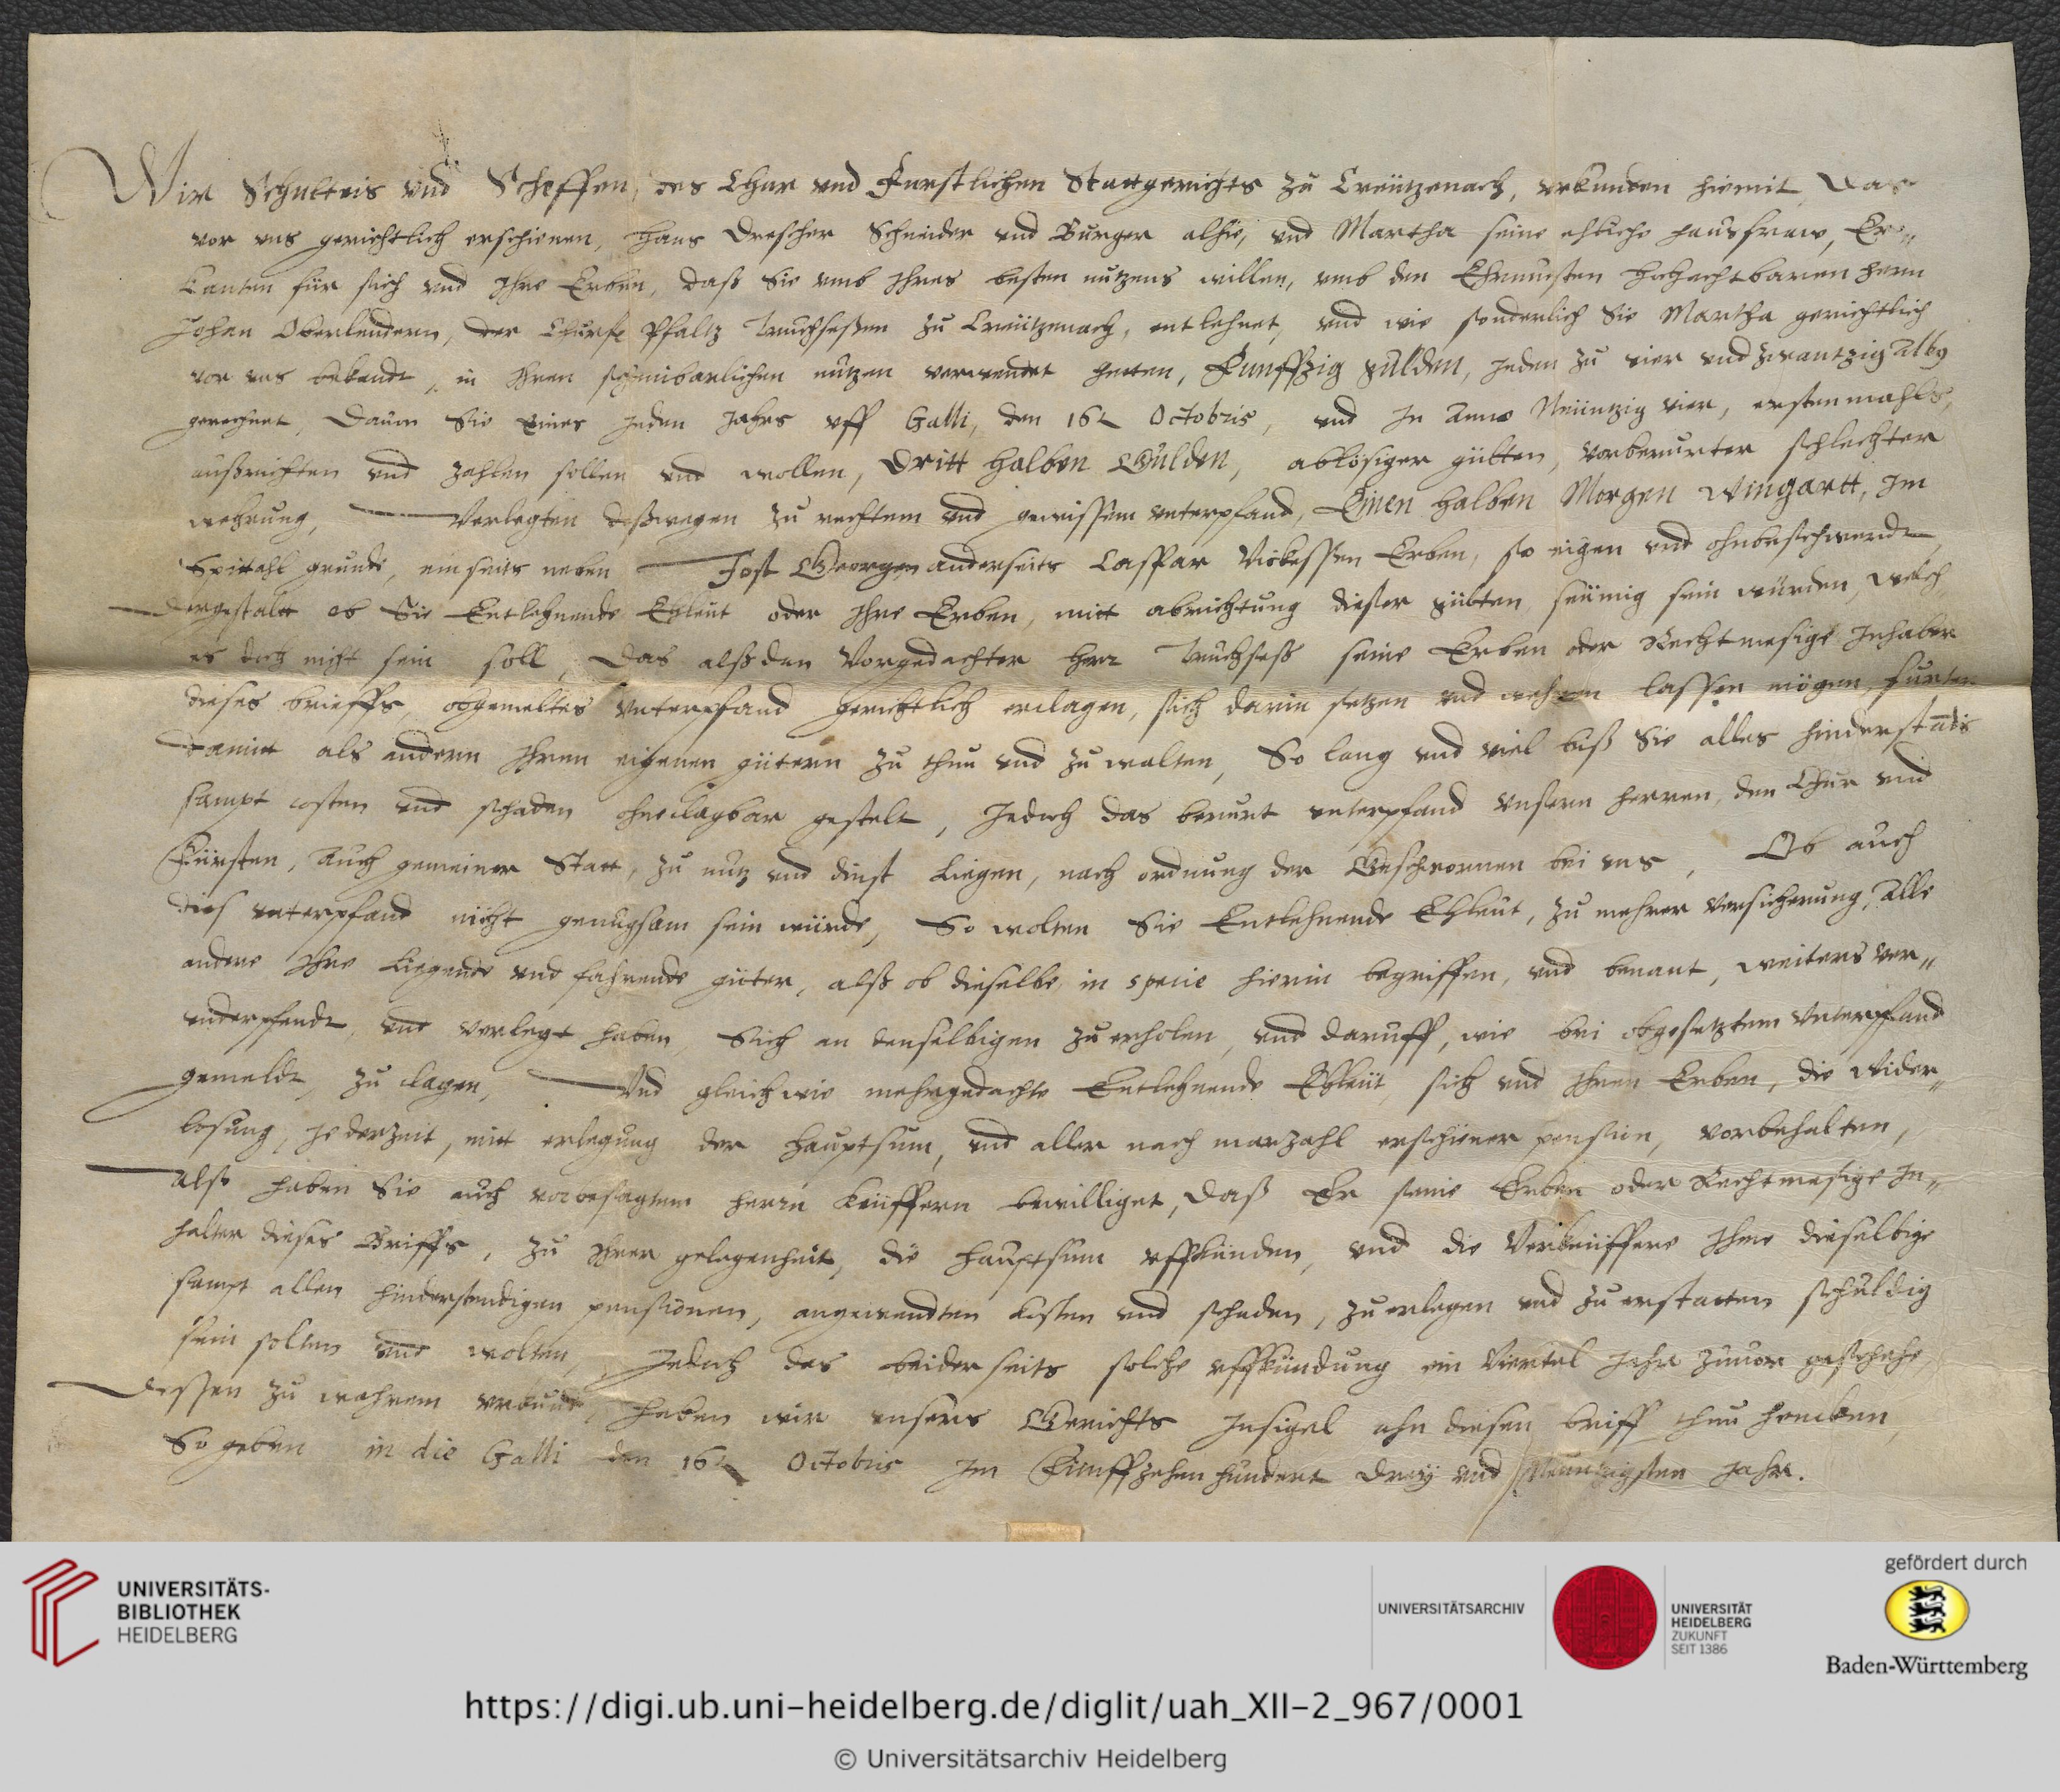 Wir Schulteis vnd Scheffen, des Chur vnd Furstlichen Stattgerichts zu Creützenach, vrkunden hiemit, Das
vor vns gerichtlich erschienen, Hans Drescher Schneider vnd Burger alhie, vnd Martha seine ehliche haussfraw, Er„
kanten für sich vnd Ihre Erben, daß Sie vmb Ihres besten nutzens willen, vmb den Ehrnuesten Hochachtbaren Hern
Johan Oberlendern, der Churf. Pfaltz Truchseßen zu Creützenach, entlehnet, vnd wie sonderlich Sie Martha gerichtlich
vor vns bekandt, in Ihren scheinbarlichen nutzen verwendet hetten, Funffzig gulden, jeden zu vier vnd zwantzig Alb9
gerechnet, Dauon Sie eines jeden Jahrs vff Galli, den 16t Octobris, vnd In Anno Neüntzig vier, erstenmahls,
außrichten vnd zahlen sollen vnd wollen, Dritt halben Gulden, ablösiger gülten, vorberurter schlechter
wehrung, Verlegten deßwegen zu rechtem vnd gewissem vnterpfand, Einen halben Morgen Wingartt, Im
Spittahl grunde, einseits neben Jost Georgen anderseits Caspar Erben, so eigen vnd ohnbeschwerdt,
Dergestaltt ob Sie Entlehnende Ehleut oder Ihre Erben, mitt abrichtung dießer gülten seümig sein würden, welch
es doch nicht sein soll, Das alßdan Vorgedachter Herr Truchseß seine Erben oder Rechtmesige Inhaber
dieses brieffs, obgemeltes vnterpfand gerichtlich erclagen, sich darin setzen vnd wehren lassen mögen, furter
damitt als andern Ihren eigenen gütern zu thun vnd zu walten, So lang vnd viel biß Sie alles hinderstands
sampt costen vnd schaden ohnclagbar gestelt, Jedoch das berurt vnterpfand vnsern herren, den Chur vnd
Fürsten, Auch gemeiner Statt, zu nutz vnd dinst liegen, nach ordnung der Geschwornen bei vns, Ob auch
dies vnterpfand nicht genugsam sein würde, So wolten Sie Entlehnende Ehleut, zu mehrer versicherung, Alle
andere Ihre liegende vnd fahrende güter, alß ob dieselbe in specie hierin begriffen, vnd benant, weiters ver„
vnderpfendt, vnd verlegt haben, Sich an denselbigen zu erholen, vnd daruff, wie bei obgesetztem Vnterpfand
gemeldt, zu clagen, Vnd gleich wie mehrgedachte Entlehnende Ehleüt sich vnd Ihren Erben, die wider„
losung, jederzeit, mitt erlegung der hauptsum, vnd aller nach marzahl erschiener pension, vorbehalten,
Also haben Sie auch vorbesagtem herrn Keüffern bewilliget, daß Er seine Erben oder Rechtmesige In„
halter dieses Briffs, zu Ihrer gelegenheit, die hauptsum vffkünden, vnd die Verkeüffere Ihme dieselbige
sampt allen hinderstendigen pensionen, angewendten kosten vnd schaden, zu erlegen vnd zu erstatten schuldig
sein solten vnd wolten, Jedoch das beiderseits solche vffkündung ein Viertel Jahr zuuor geschehe,
Dessen zu wahrem vrkundt, haben wir vnsers Gerichts Insigel ahn diesen briff thun hencken,
So geben in die Galli den 16t Octobris Im Fünffzehenhundert Drey vnd Neuntzigsten Jahr.
UNIVERSITÄTS-
BIBLIOTHEK
HEIDELBERG
UNIVERSITÄTSARCHIV
UNIVERSITÄT
HEIDELBERG
ZUKUNFT
SEIT 1386
gefördert durch
Baden-Württemberg
https://digi.ub.uni-heidelberg.de/diglit/uah_XII-2_967/0001
© Universitätsarchiv Heidelberg